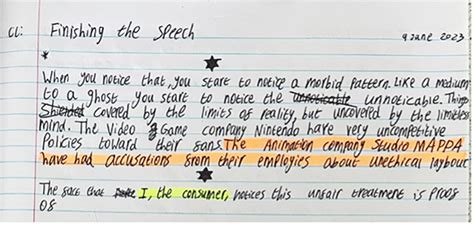 CL: Finishing the speech 9 June 2023
*
When you notice that, you start to notice a morbid pattern. Like a medium
to a ghost you start to notice the unnoticable unnoticable. Things
Shielded covered by the limits of reality, but uncovered by the limeless
mind. The Video Game company Nintendo have very uncompetitive
Policies toward their fans. The Animation company Studio MAPPA
have had accusations from their employies about unethical laybour
The fact that I, the consumer, notices this unfair treatment is proof
of